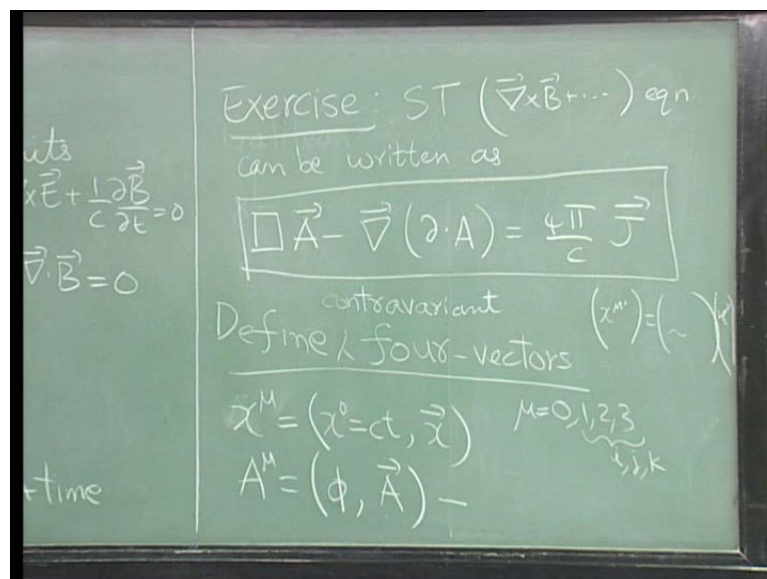 its
×E⃗ + 1/c ∂B⃗/∂t = 0
∇⃗·B⃗ = 0
+time
Exercise: ST (∇⃗×B⃗+···) eqn
can be written as
□A⃗ − ∇⃗(∂·A) = 4π/c J⃗
contravariant
Define ⁁ four-vectors
(x^μ') = (~)(x^μ)
x^μ = (x⁰=ct, x⃗) μ=0,1,2,3
i,j,k
A^μ = (φ, A⃗) −